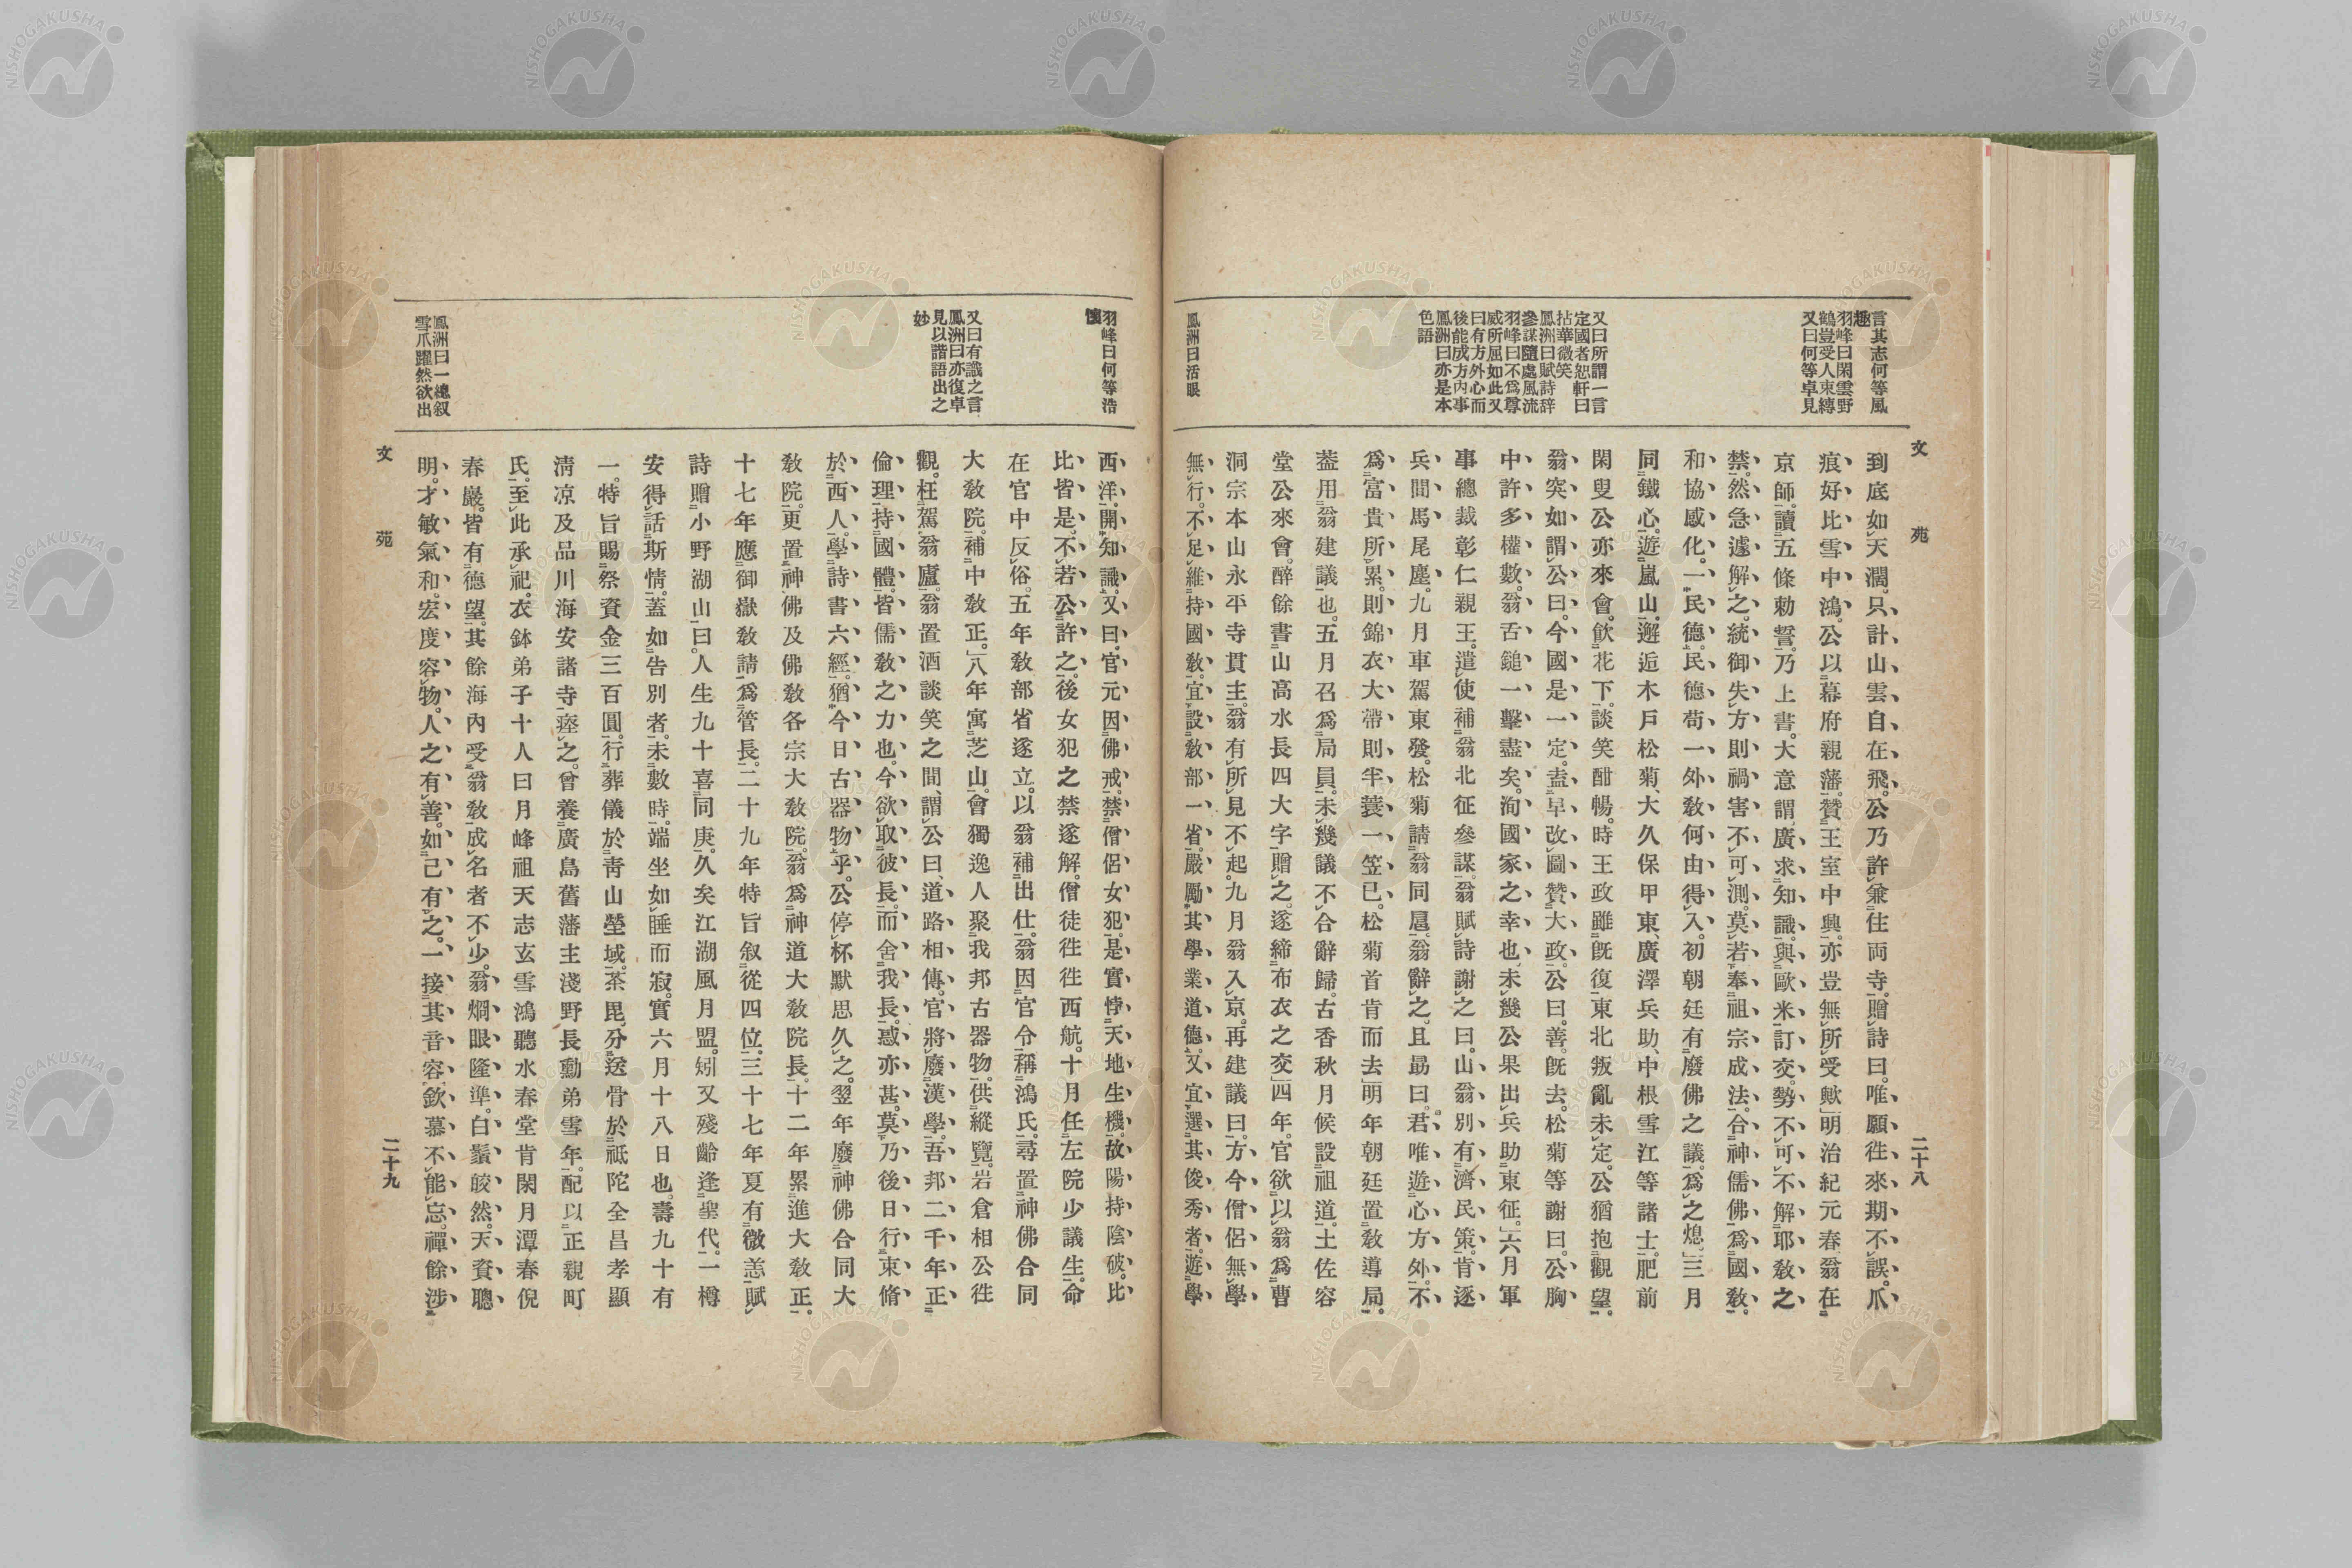 文苑
二十八
言其志何等風
趣
羽峰曰閑雲野
鶴豈受人束縛
又曰何等卓見
又曰所謂一言
定國者恕軒曰
拈華微笑
鳳洲曰賦詩辞
參謀隨處風流
羽峰曰不爲尊
威所屈如此又
曰有方外心而
後能成方內事
鳳洲曰亦是本
色語
鳳洲曰活眼
到底如天濶。只計山雲自在飛。公乃許兼住両寺。贈詩曰。唯願徃來期不誤。爪
痕好比雪中鴻。公以幕府親藩。贊王室中興。亦豈無所受歟」明治紀元春、翁在
京師。讀五條勅誓。乃上書。大意謂、廣求知識。與歐米訂交。勢不可不解耶敎之
禁。然急遽解之。統御失方則禍害不可測。莫若奉祖宗成法。合神儒佛爲國敎。
和協感化。一民德。民德苟一、外敎何由得入。初朝廷有廢佛之議。爲之熄。」三月
同鐵心。遊嵐山。邂逅木戶松菊、大久保甲東、廣澤兵助、中根雪江等諸士。肥前
閑叟公亦來會。飲花下。談笑酣暢。時王政雖既復、東北叛亂未定。公猶抱觀望。
翁突如謂公曰。今國是一定。盍早改圖贊大政。公曰。善。既去。松菊等謝曰。公胸
中許多權數。翁舌鎚一擊盡矣。洵國家之幸也、未幾公果出兵助東征。」六月軍
事總裁彰仁親王。遣使補翁北征參謀。翁賦詩謝之曰。山翁別有濟民策。肯逐
兵間馬尾塵。九月車駕東發。松菊請翁同扈。翁辭之、且勗曰。君唯遊心方外。不
爲富貴所累。則錦衣大帶則牢。蓑一笠已。松菊首肯而去」明年朝廷置敎導局。
葢用翁建議也。五月召爲局員。未幾議不合辭歸。古香秋月候設祖道。土佐容
堂公來會。醉餘書山高水長四大字。贈之。遂締布衣之交」四年。官欲以翁爲曹
洞宗本山永平寺貫主。翁有所見不起。九月翁入京。再建議曰。方今僧侶無學
無行。不足維持國敎。宜設敎部一省。嚴勵其學業道德。又宜選其俊秀者。遊學
羽峰曰何等浩
懷
又曰有識之言
鳳洲曰亦復卓
見以諧語出之
妙
鳳洲曰一總叙
雪爪躍然欲出
西洋。開知識。又曰。官元因佛戒。禁僧侶女犯。是實悖天地生機。故陽持陰破。比
比皆是。不若公許之。後女犯之禁遂解。僧徒徃徃西航。十月任左院少議生。命
在官中反俗。五年敎部省遂立。以翁補出仕。翁因官令稱鴻氏。尋置神佛合同
大敎院。補中敎正。」八年寓芝山。會獨逸人聚我邦古器物。供縱覽。岩倉相公徃
觀。枉駕翁廬。翁置酒談笑之間、謂公曰、道路相傳。官將廢漢學。吾邦二千年正
倫理。持國體。皆儒敎之力也。今欲取彼長。而舍我長。惑亦甚。莫乃後日行束脩
於西人。學詩書六經。猶今日古器物乎。公停杯默思久之。翌年廢神佛合同大
敎院。更置神佛及佛敎各宗大敎院。翁爲神道大敎院長。十二年累進大敎正。
十七年應御嶽敎請。爲管長。二十九年特旨叙從四位。三十七年夏有微恙。賦
詩贈小野湖山曰。人生九十喜同庚。久矣江湖風月盟。矧又殘齡逢聖代。一樽
安得話斯情。葢如告別者。未數時。端坐如睡而寂。實六月十八日也。壽九十有
一。特旨賜祭資金三百圓。行葬儀於靑山塋域。茶毘分送骨於祇陀全昌孝顯
淸凉及品川海安諸寺。瘞之。曾養廣島舊藩主淺野長勳弟雪年。配以正親町
氏。至此承祀。衣鉢弟子十人曰月峰祖天志玄雪鴻聽水春堂肯閑月潭春倪
春巖。皆有德望。其餘海內受翁敎成名者不少。翁烱眼隆準。白鬚皎然。天資聰
明。才敏氣和。宏度容物。人之有善。如己有之。一接其音容。欽慕不能忘。禪餘涉
文苑
二十九